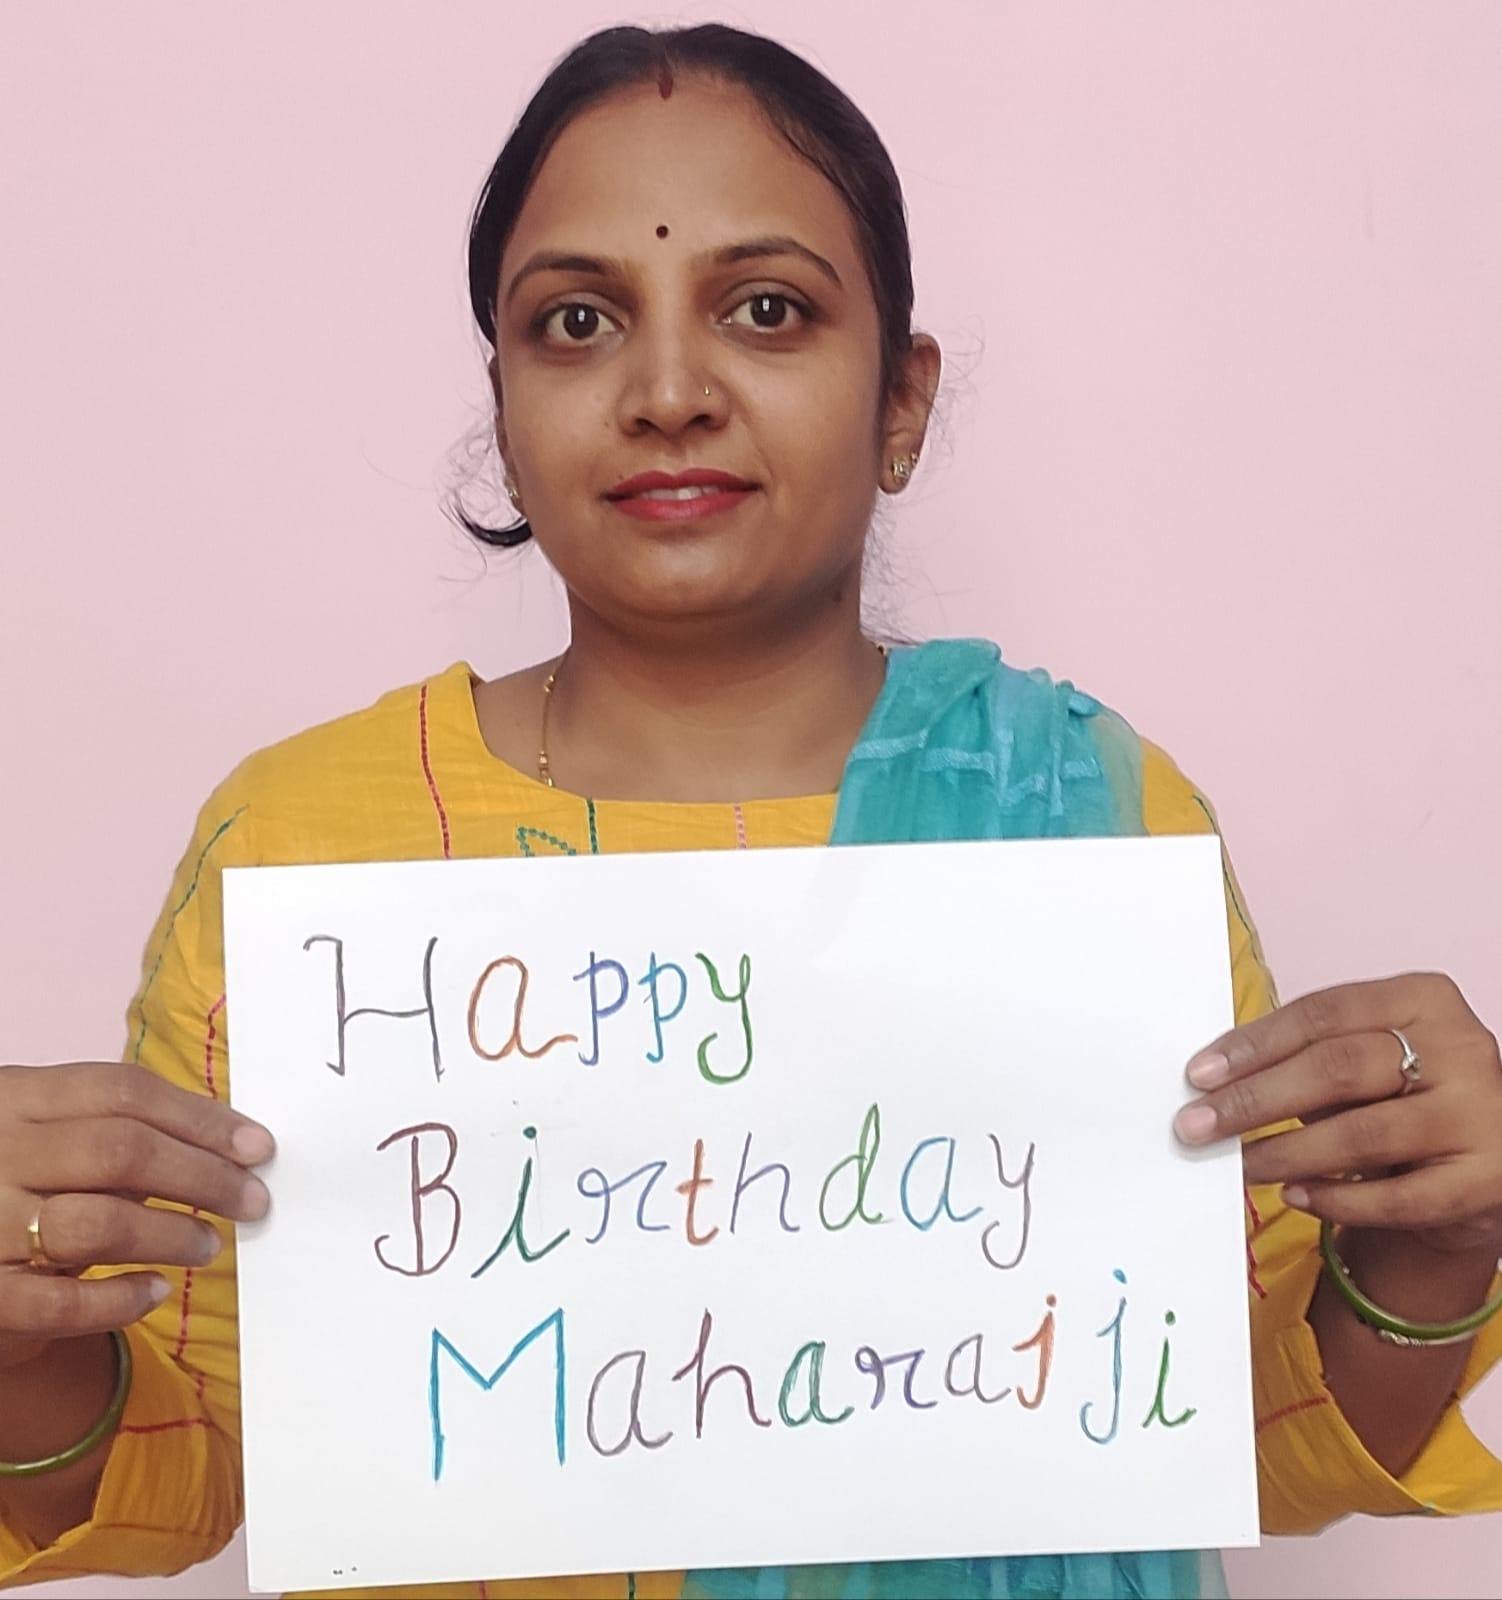 Happy
Birthday
Maharaj ji